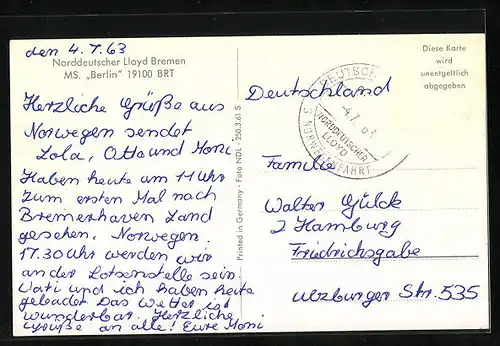 den 4.7.63
Norddeutscher Lloyd Bremen
MS. „Berlin" 19100 BRT
Herzliche Grüße aus
Norwegen sendet
Lola, Otto und Moni
Haben heute um 11 Uhr
zum ersten Mal nach
Bremerhaven Land
gesehen, Norwegen.
17.30 Uhr werden wir
an der Lotsenstelle sein.
Vati und ich haben heute
gebadet. Das Wetter ist
wunderbar. Herzliche
Grüße an alle! Eure Moni
Printed in Germany - Foto NDL - 250.3.61 S
Diese Karte
wird
unentgeltlich
abgegeben
DEUTSCHE
4.7. 63
NORDDEUTSCHER
LLOYD
Deutschland
Familie
Walter Gülck
2 Hamburg
Friedrichsgabe
Ulzburger Str. 535